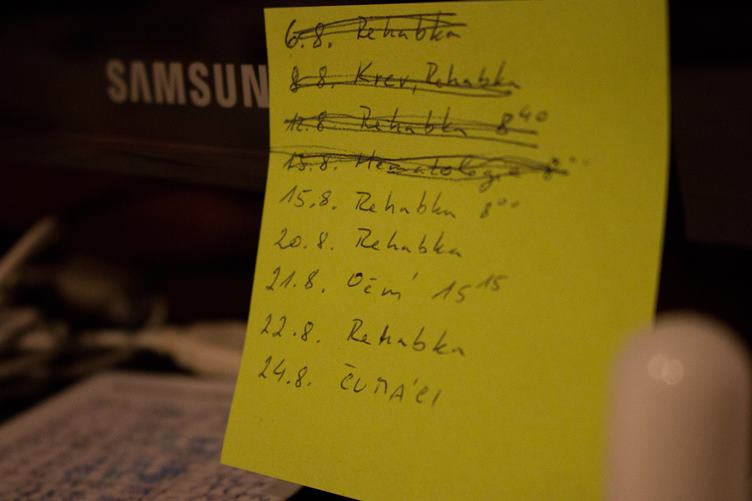 SAMSUN
6.8. Rehabka
8.8. Krev, Rehabka
12.8. Rehabka 8⁴⁰
13.8. Hematologie 8⁰⁰
15.8. Rehabka 8⁰⁰
20.8. Rehabka
21.8. Oční 15¹⁵
22.8. Rehabka
24.8. ČUMÁCI